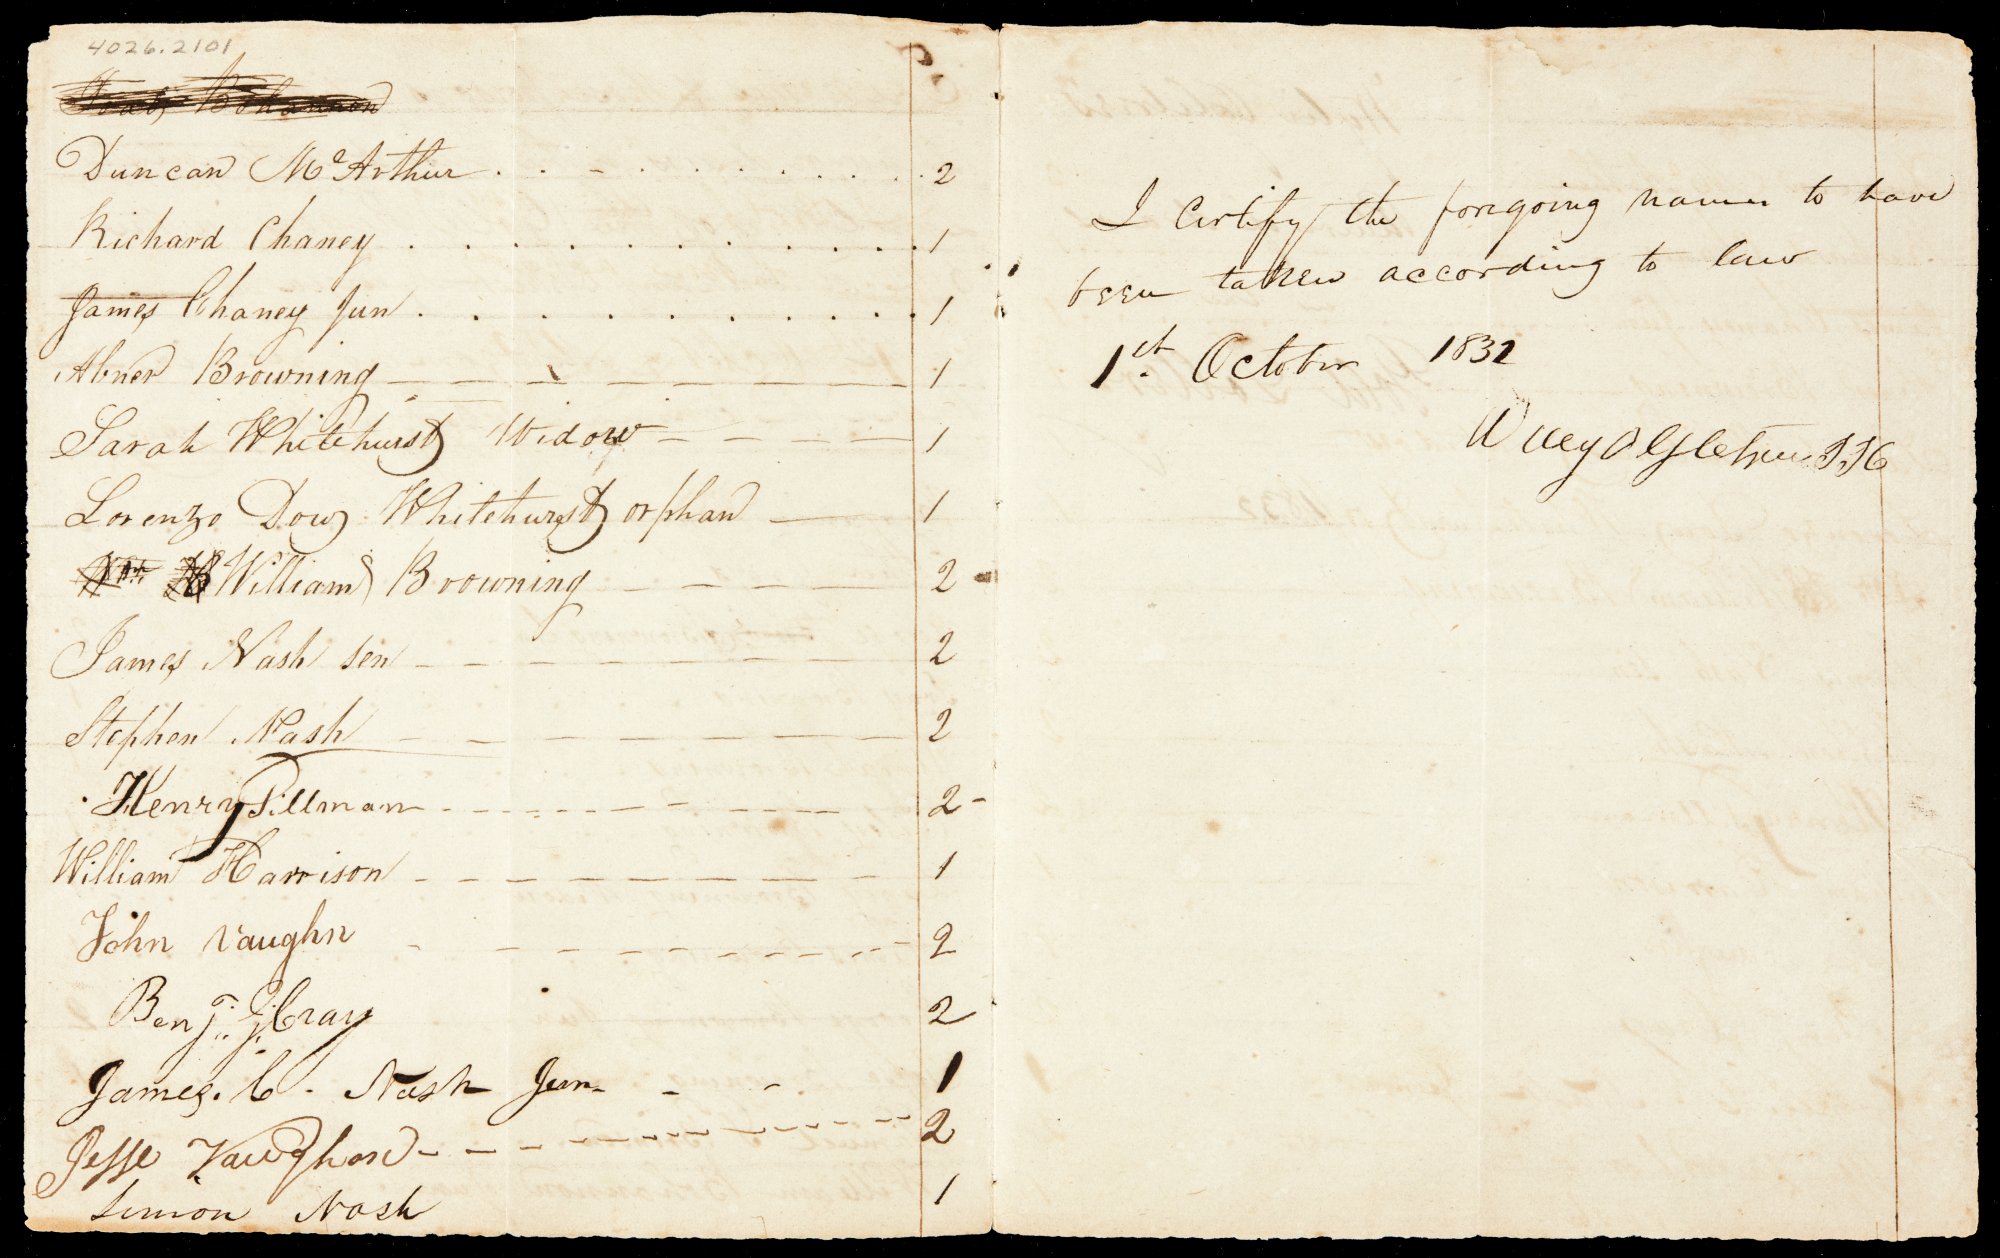 4026.2101
Bohannon
Duncan McArthur . . . . . . . . . . . 2
Richard Chaney . . . . . . . . . . 1
James Chaney Jun . . . . . . . . . 1
Abner Browning — — — — — — — — 1
Sarah Whitehurst Widow — — — — 1
Lorenzo Dow Whitehurst orphan — — 1
William Browning — — — — 2
James Nash sen — — — — — — — — 2
Stephen Nash — — — — — — — — 2
Henry Tillman - - - - - - - - - 2 -
William Harrison - - - - - - - - - 1
John Vaughn - - - - - - - - - 2
Benj. J. Cray 2
James. C. Nash Jun - - - 1
Jesse Vaughan - - - - - - - - - 2
Simon Nash 1
I Certify the foregoing names to have
been taken according to law
1st. October 1832